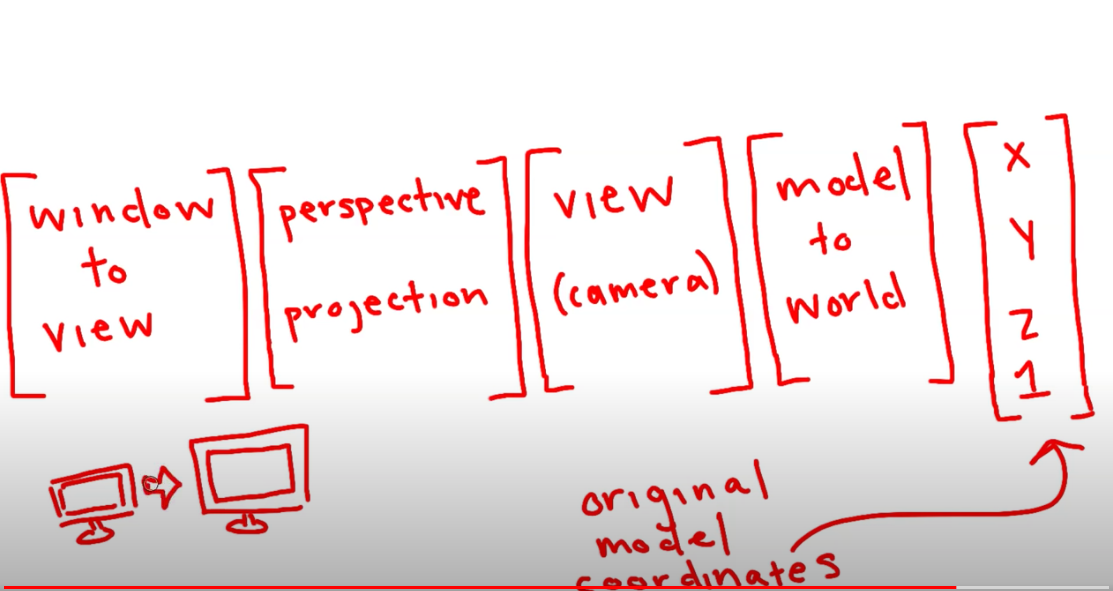 window
to
view
perspective
projection
view
(camera)
model
to
world
x
y
z
1
original
model
coordinates